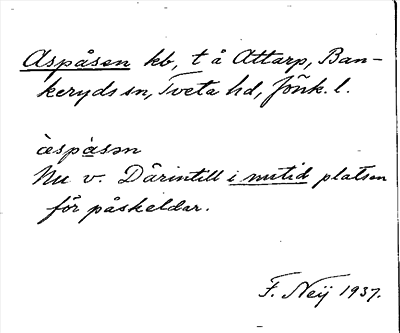 Aspåsen kb, t å Attarp, Ban-
keryds sn, Tveta hd, Jönk. l.
àspàsən
Nu v. Därintill i nutid platsen
för påskeldar.
F. Neij 1937.